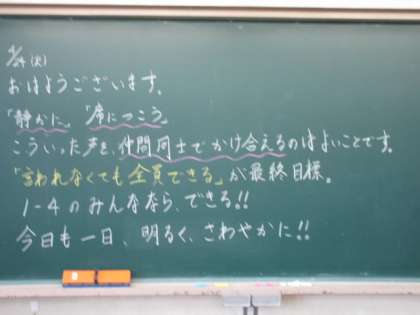 4/24(火)
おはようございます。
「静かに。」「席につこう。」
こういった声を、仲間同士でかけ合えるのはよいことです。
「言われなくても全員できる」が最終目標。
1-4のみんななら、できる!!
今日も一日、明るく、さわやかに!!